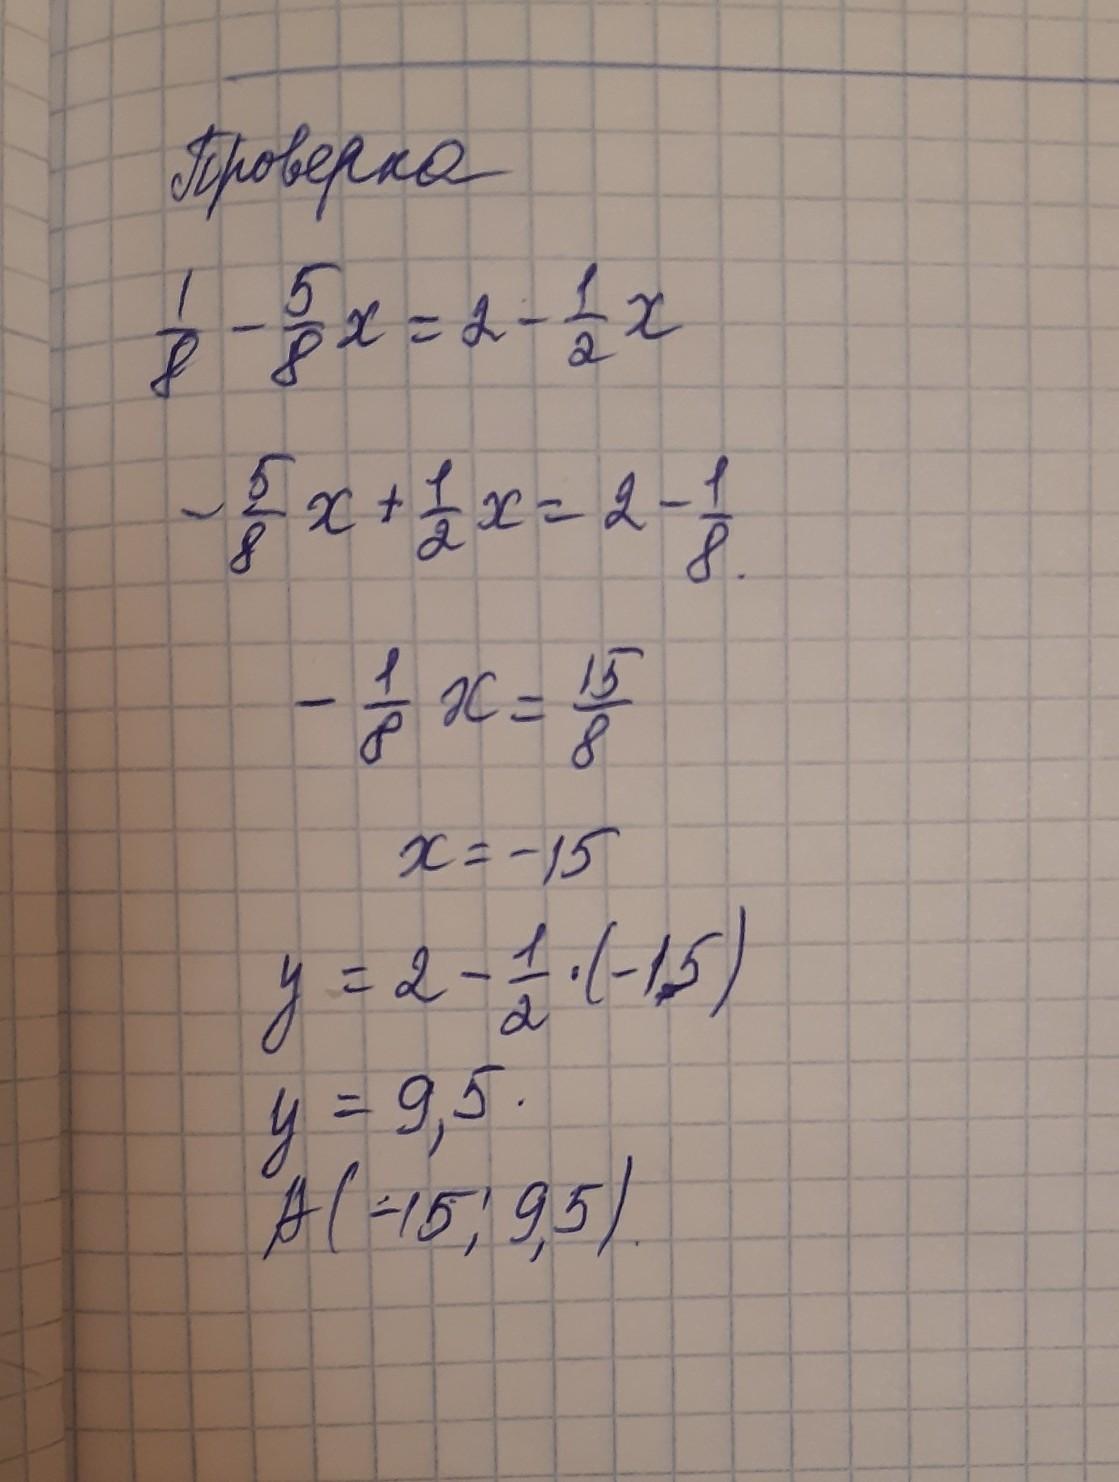 Проверка
1/8 - 5/8 x = 2 - 1/2 x
- 5/8 x + 1/2 x = 2 - 1/8.
- 1/8 x = 15/8
x = -15
y = 2 - 1/2 · (-15)
y = 9,5.
A(-15; 9,5).